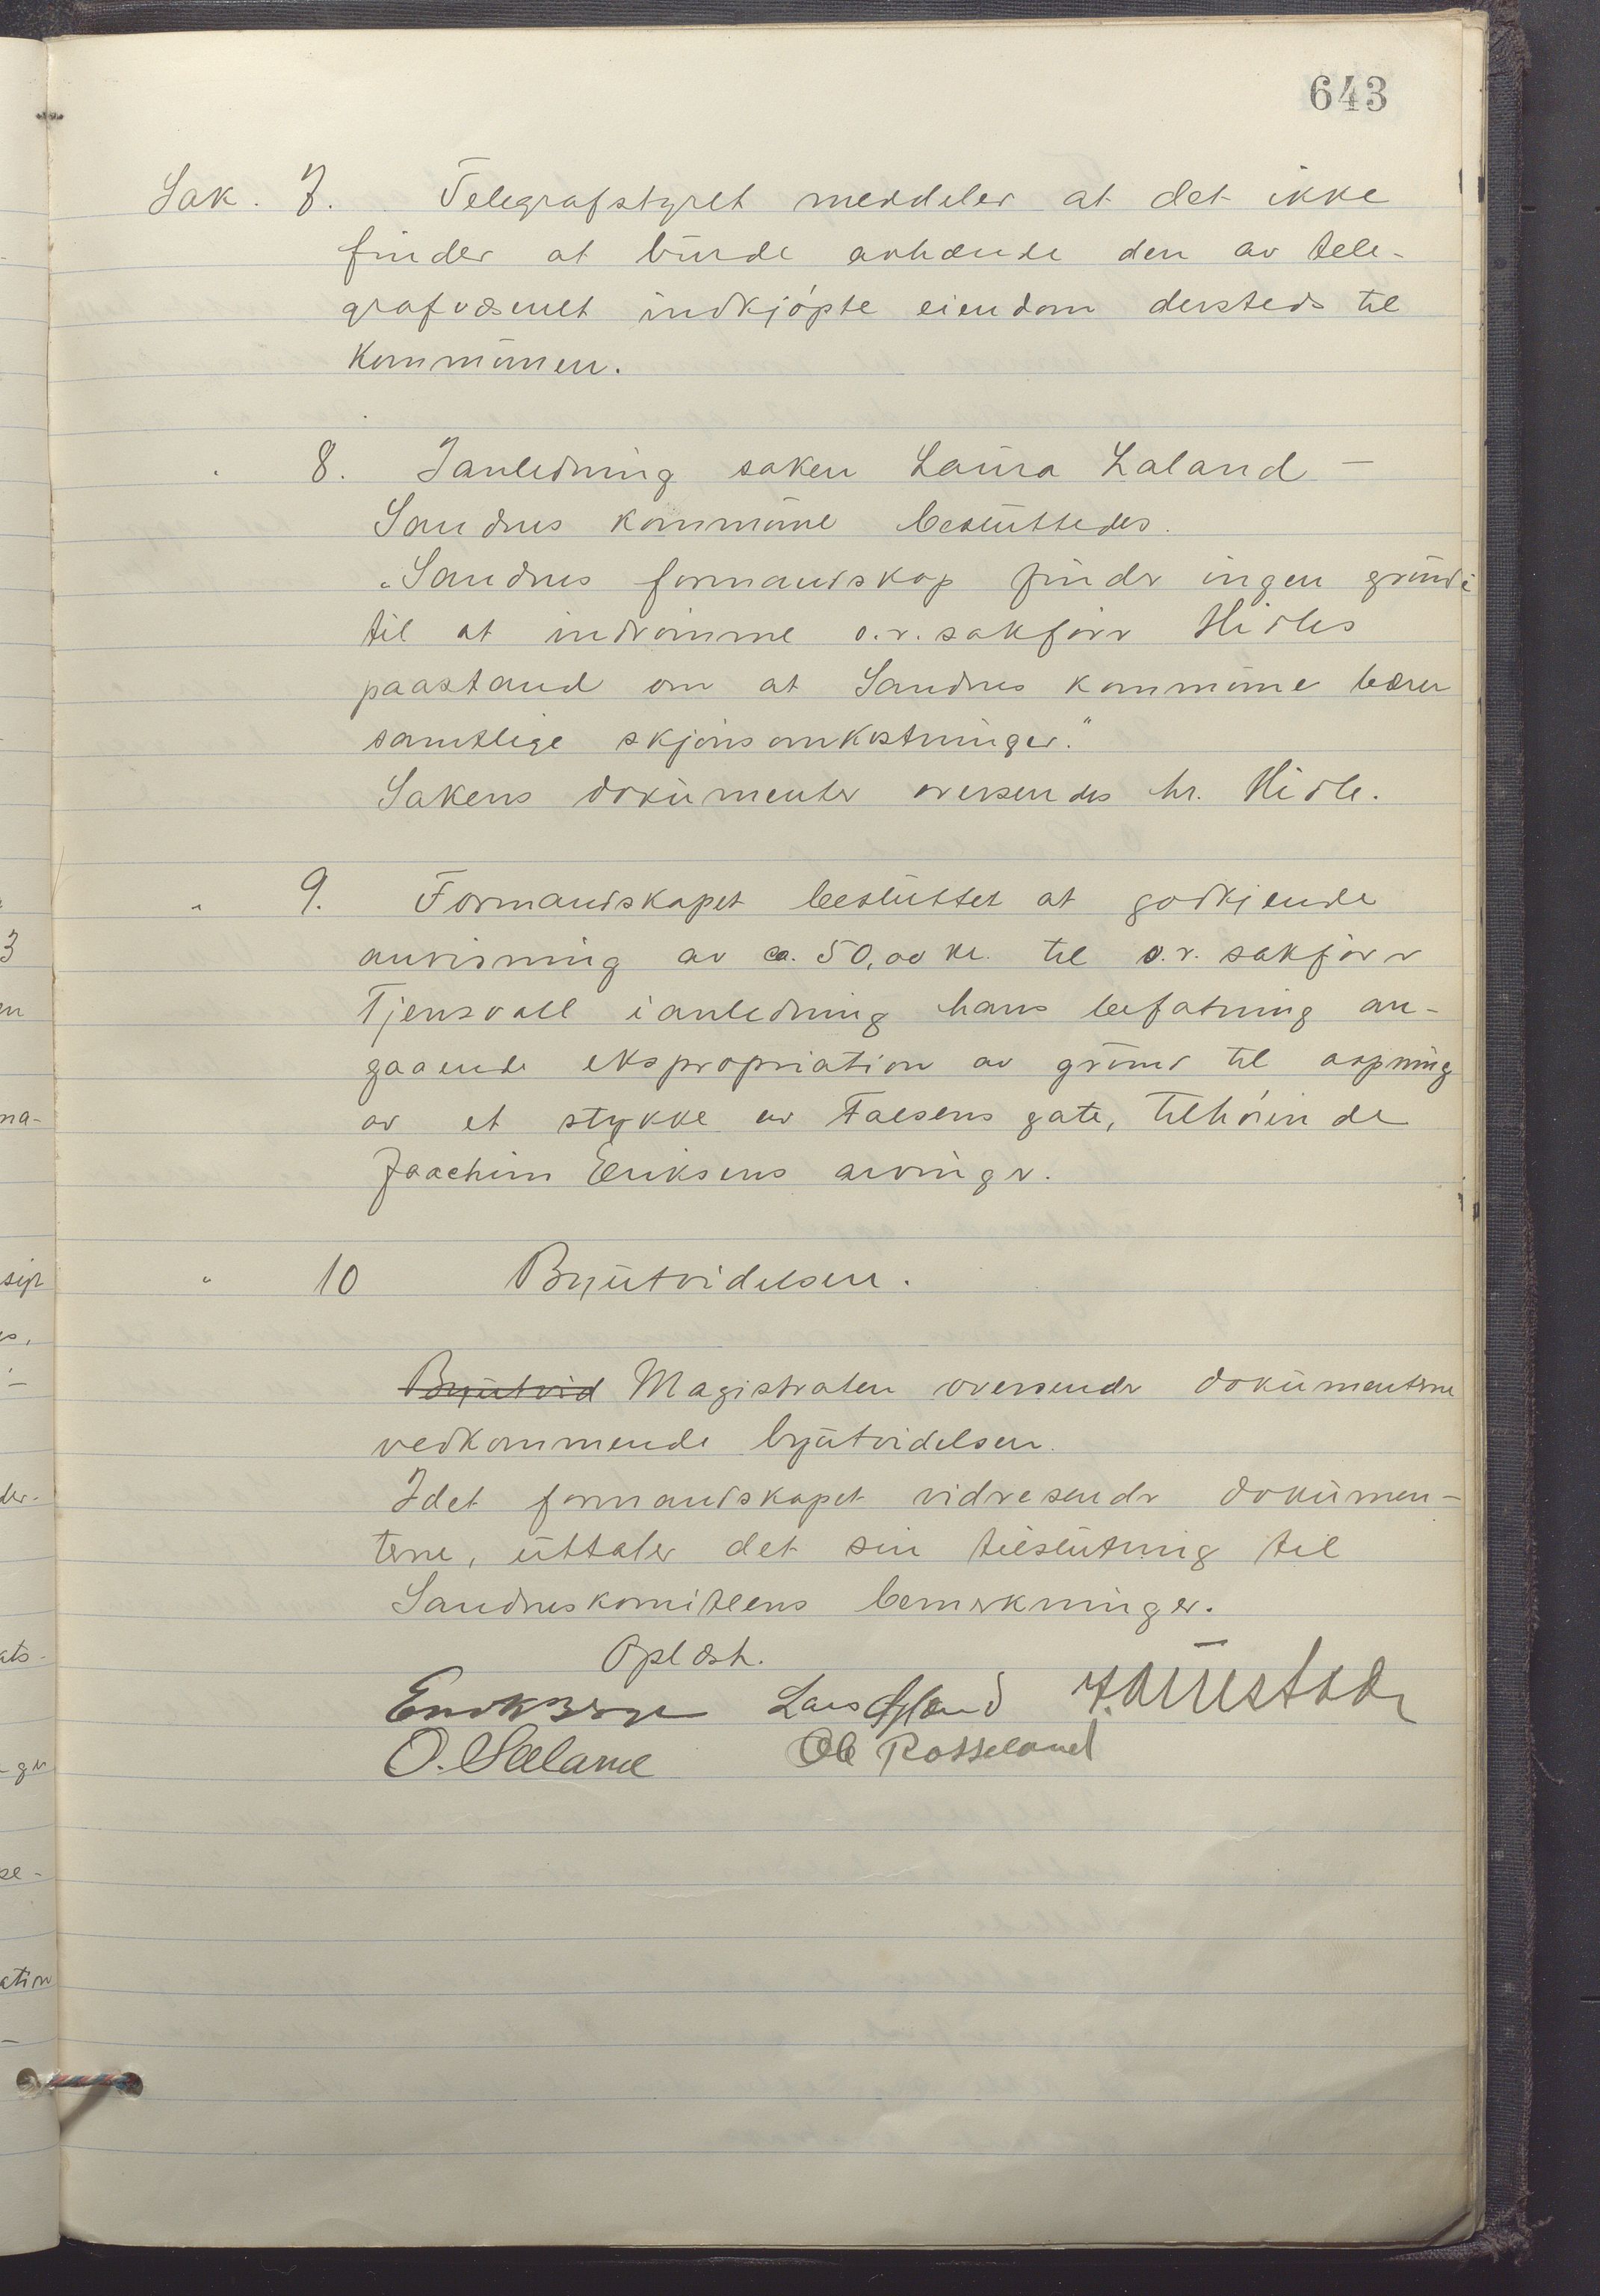 643
Sak. 7. Telegrafstyret meddeler at det ikke
finder at burde avhænde den av tele-
grafvæsenet indkjøpte eiendom dersteds til
kommunen.
" 8. Ianledning saken Laura Laland —
Sandnes kommune besluttedes.
"Sandnes formandskap finder ingen grund
til at indrømme o.r. sakfører Hidles
paastand om at Sandnes kommune bærer
samtlige skjønsomkostninger."
Sakens dokumenter oversendes hr. Hidle.
" 9. Formandskapet besluttet at godkjende
anvisning av ca. 50,00 kr. til o.r. sakfører
Tjensvoll ianledning hans befatning an-
gaaende ekspropriation av grund til aapning
av et stykke av Falsens gate, tilhørende
Joachim Eriksens arvinger.
" 10 Byutvidelsen.
Byutvid Magistraten oversender dokumenterne
vedkommende byutvidelsen.
Idet formandskapet videresender dokumen-
terne, uttaler det sin tilslutning til
Sandneskomiteens bemerkninger.
Oplæst.
Erik Berge Lars
O. Ole Rosseland